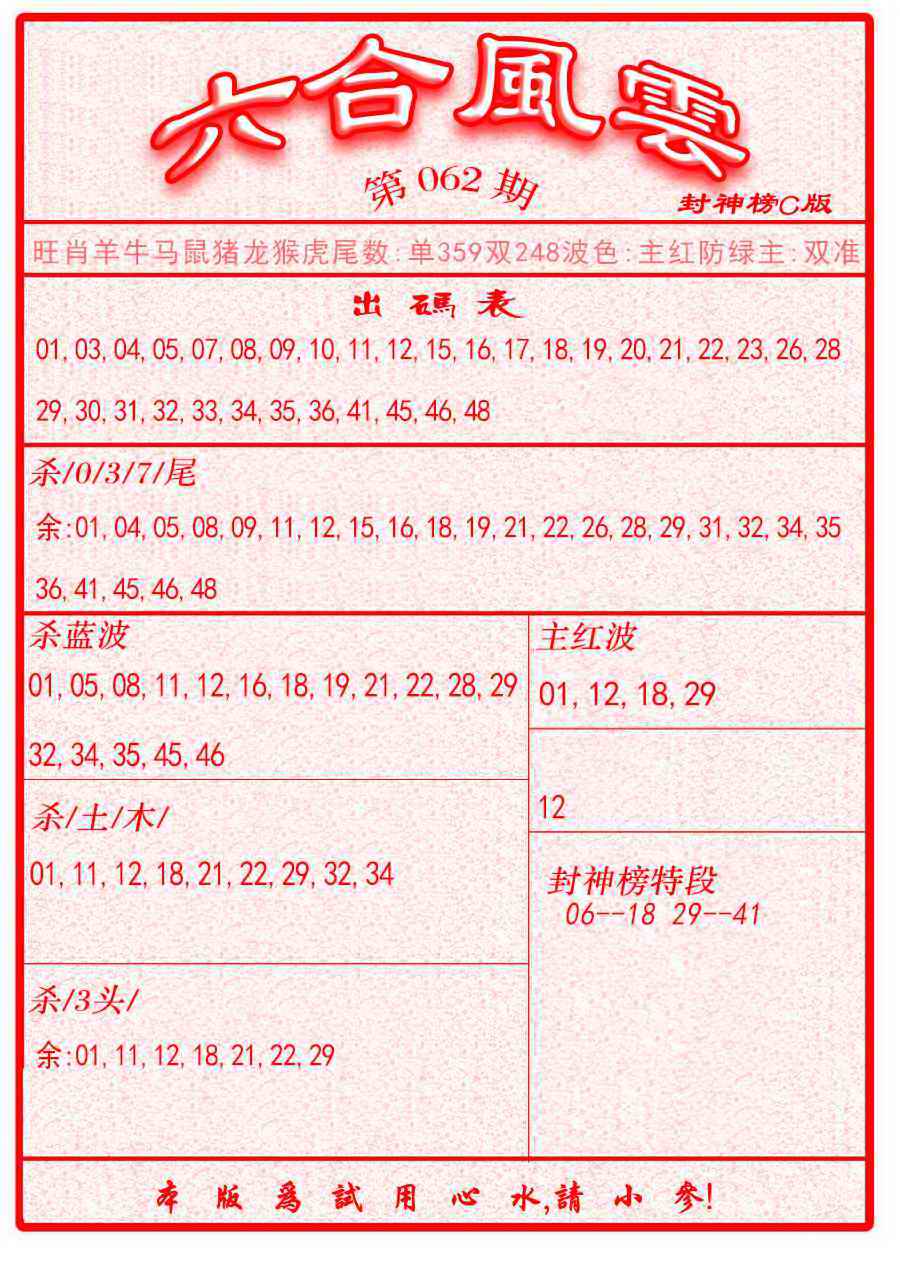 六合風雲
第062期
封神榜C版
旺肖羊牛马鼠猪龙猴虎尾数:单359双248波色:主红防绿主:双准
出碼表
01,03,04,05,07,08,09,10,11,12,15,16,17,18,19,20,21,22,23,26,28
29,30,31,32,33,34,35,36,41,45,46,48
杀/0/3/7/尾
余:01,04,05,08,09,11,12,15,16,18,19,21,22,26,28,29,31,32,34,35
36,41,45,46,48
杀蓝波
01,05,08,11,12,16,18,19,21,22,28,29
32,34,35,45,46
主红波
01,12,18,29
12
杀/土/木/
01,11,12,18,21,22,29,32,34
封神榜特段
06--18 29--41
杀/3头/
余:01,11,12,18,21,22,29
本版爲試用心水,請小參!